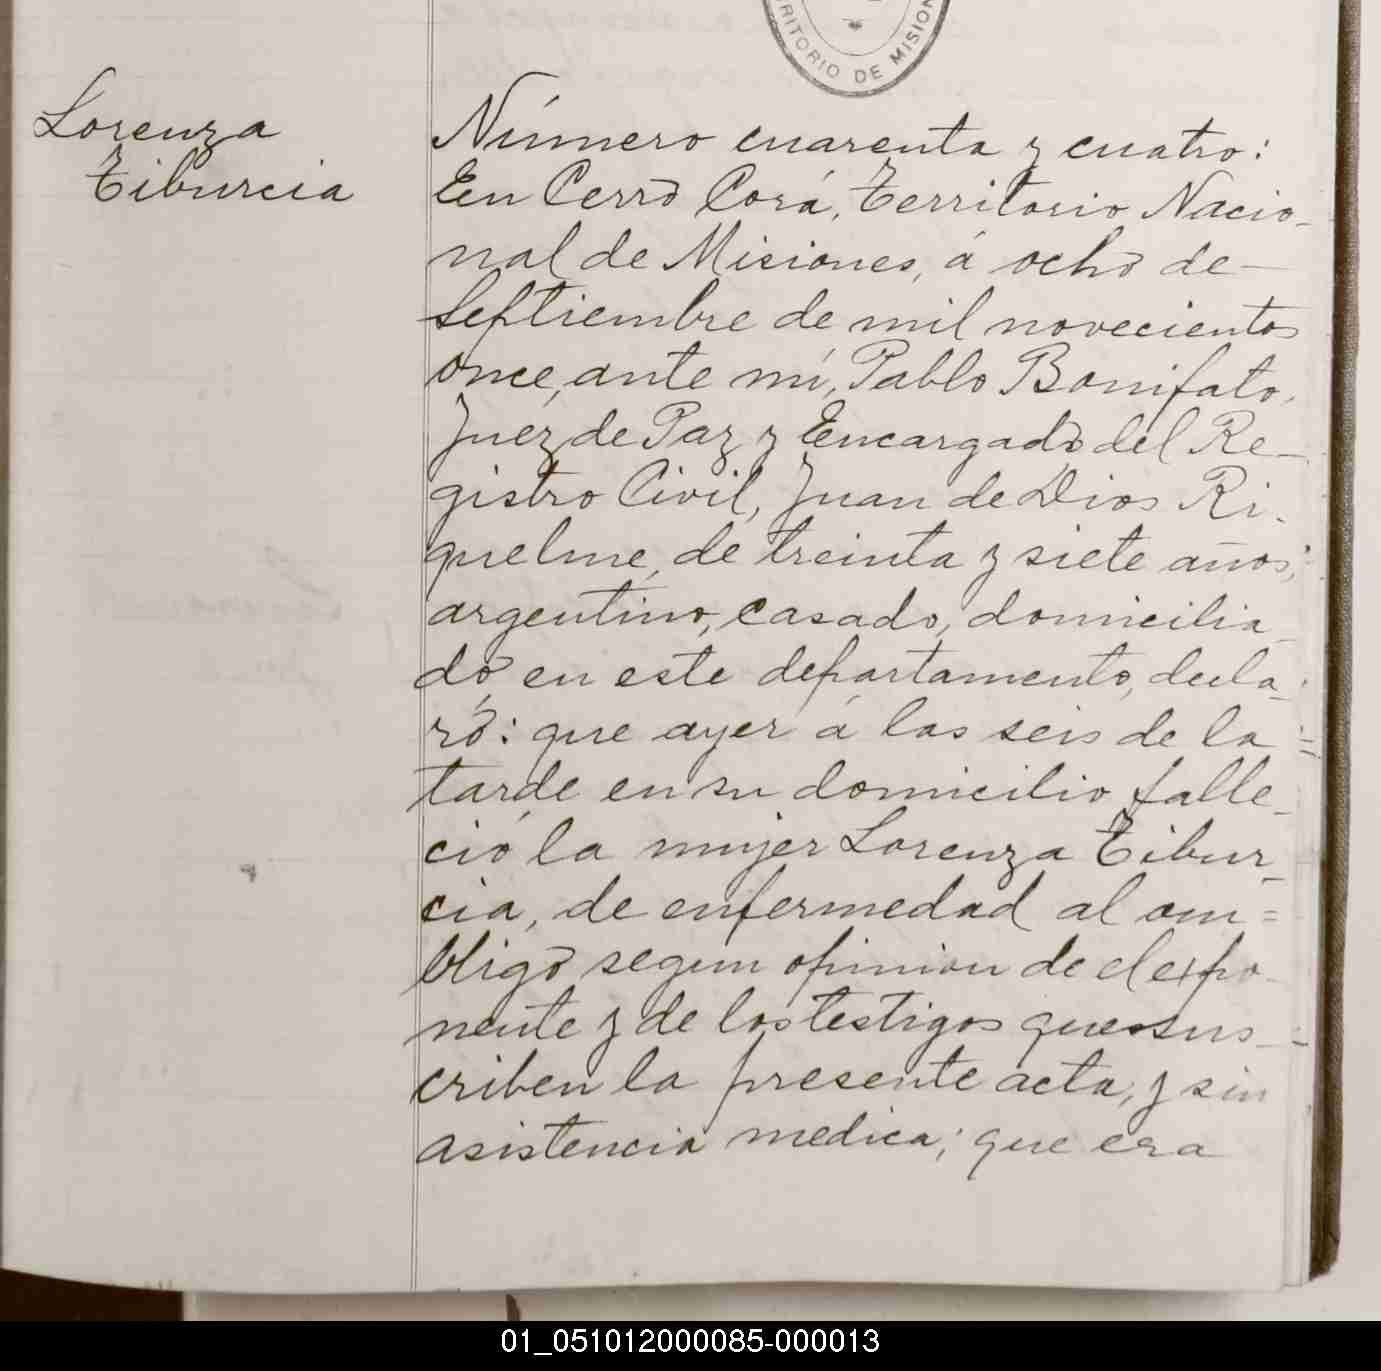 RITORIO DE MISION
Lorenza
Tiburcia
Número cuarenta y cuatro:
En Cerro Corá, Territorio Nacio-
nal de Misiones, á ocho de
Septiembre de mil novecientos
once, ante mí, Pablo Bonifato,
Juez de Paz y Encargado del Re-
gistro Civil, Juan de Dios Ri-
quelme, de treinta y siete años,
argentino, casado, domicilia-
do en este departamento, decla-
ró: que ayer á las seis de la
tarde en su domicilio falle-
ció la mujer Lorenza Tibur-
cia, de enfermedad al om=
bligo segun opinion de el expo-
nente y de los testigos que sus-
criben la presente acta, y sin
asistencia medica; que era
01_051012000085-000013